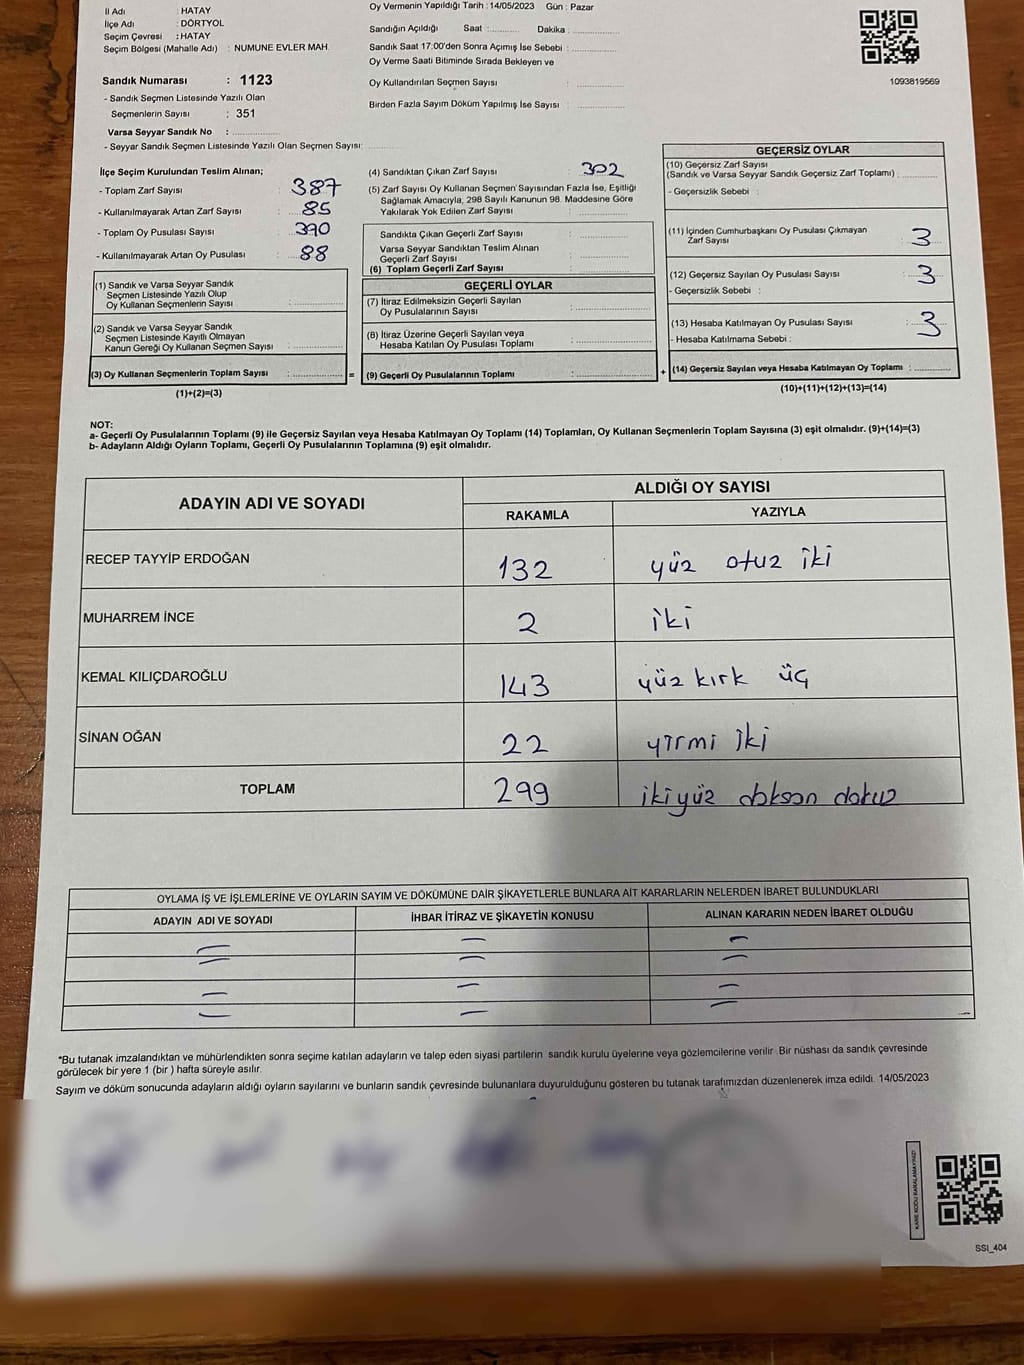 İl Adı : HATAY
İlçe Adı : DÖRTYOL
Seçim Çevresi : HATAY
Seçim Bölgesi (Mahalle Adı) : NUMUNE EVLER MAH.
Sandık Numarası : 1123
- Sandık Seçmen Listesinde Yazılı Olan
Seçmenlerin Sayısı : 351
Varsa Seyyar Sandık No :
- Seyyar Sandık Seçmen Listesinde Yazılı Olan Seçmen Sayısı:
Oy Vermenin Yapıldığı Tarih : 14/05/2023 Gün : Pazar
Sandığın Açıldığı Saat : Dakika :
Sandık Saat 17:00'den Sonra Açımış İse Sebebi :
Oy Verme Saati Bitiminde Sırada Bekleyen ve
Oy Kullandırılan Seçmen Sayısı :
Birden Fazla Sayım Döküm Yapılmış İse Sayısı :
1093819569
İlçe Seçim Kurulundan Teslim Alınan;
- Toplam Zarf Sayısı : 387
- Kullanılmayarak Artan Zarf Sayısı : 85
- Toplam Oy Pusulası Sayısı : 390
- Kullanılmayarak Artan Oy Pusulası : 88
(1) Sandık ve Varsa Seyyar Sandık
Seçmen Listesinde Yazılı Olup
Oy Kullanan Seçmenlerin Sayısı :
(2) Sandık ve Varsa Seyyar Sandık
Seçmen Listesinde Kayıtlı Olmayan
Kanun Gereği Oy Kullanan Seçmen Sayısı :
(3) Oy Kullanan Seçmenlerin Toplam Sayısı :
(1)+(2)=(3)
(4) Sandıktan Çıkan Zarf Sayısı : 302
(5) Zarf Sayısı Oy Kullanan Seçmen Sayısından Fazla İse, Eşitliği
Sağlamak Amacıyla, 298 Sayılı Kanunun 98. Maddesine Göre
Yakılarak Yok Edilen Zarf Sayısı :
Sandıkta Çıkan Geçerli Zarf Sayısı :
Varsa Seyyar Sandıktan Teslim Alınan
Geçerli Zarf Sayısı :
(6) Toplam Geçerli Zarf Sayısı :
GEÇERLİ OYLAR
(7) İtiraz Edilmeksizin Geçerli Sayılan
Oy Pusulalarının Sayısı :
(8) İtiraz Üzerine Geçerli Sayılan veya
Hesaba Katılan Oy Pusulası Toplamı :
= (9) Geçerli Oy Pusulalarının Toplamı :
GEÇERSİZ OYLAR
(10) Geçersiz Zarf Sayısı
(Sandık ve Varsa Seyyar Sandık Geçersiz Zarf Toplamı) :
- Geçersizlik Sebebi :
(11) İçinden Cumhurbaşkanı Oy Pusulası Çıkmayan
Zarf Sayısı : 3
(12) Geçersiz Sayılan Oy Pusulası Sayısı : 3
- Geçersizlik Sebebi :
(13) Hesaba Katılmayan Oy Pusulası Sayısı : 3
- Hesaba Katılmama Sebebi :
+ (14) Geçersiz Sayılan veya Hesaba Katılmayan Oy Toplamı :
(10)+(11)+(12)+(13)=(14)
NOT:
a- Geçerli Oy Pusulalarının Toplamı (9) ile Geçersiz Sayılan veya Hesaba Katılmayan Oy Toplamı (14) Toplamları, Oy Kullanan Seçmenlerin Toplam Sayısına (3) eşit olmalıdır. (9)+(14)=(3)
b- Adayların Aldığı Oyların Toplamı, Geçerli Oy Pusulalarının Toplamına (9) eşit olmalıdır.
ADAYIN ADI VE SOYADI
ALDIĞI OY SAYISI
RAKAMLA YAZIYLA
RECEP TAYYİP ERDOĞAN 132 yüz otuz iki
MUHARREM İNCE 2 iki
KEMAL KILIÇDAROĞLU 143 yüz kırk üç
SİNAN OĞAN 22 yirmi iki
TOPLAM 299 ikiyüz doksan dokuz
OYLAMA İŞ VE İŞLEMLERİNE VE OYLARIN SAYIM VE DÖKÜMÜNE DAİR ŞİKAYETLERLE BUNLARA AİT KARARLARIN NELERDEN İBARET BULUNDUKLARI
ADAYIN ADI VE SOYADI İHBAR İTİRAZ VE ŞİKAYETİN KONUSU ALINAN KARARIN NEDEN İBARET OLDUĞU
*Bu tutanak imzalandıktan ve mühürlendikten sonra seçime katılan adayların ve talep eden siyasi partilerin sandık kurulu üyelerine veya gözlemcilerine verilir. Bir nüshası da sandık çevresinde
görülecek bir yere 1 (bir ) hafta süreyle asılır.
Sayım ve döküm sonucunda adayların aldığı oyların sayılarını ve bunların sandık çevresinde bulunanlara duyurulduğunu gösteren bu tutanak tarafımızdan düzenlenerek imza edildi. 14/05/2023
KARE KODU KARALAMAYINIZ!
SSI_404